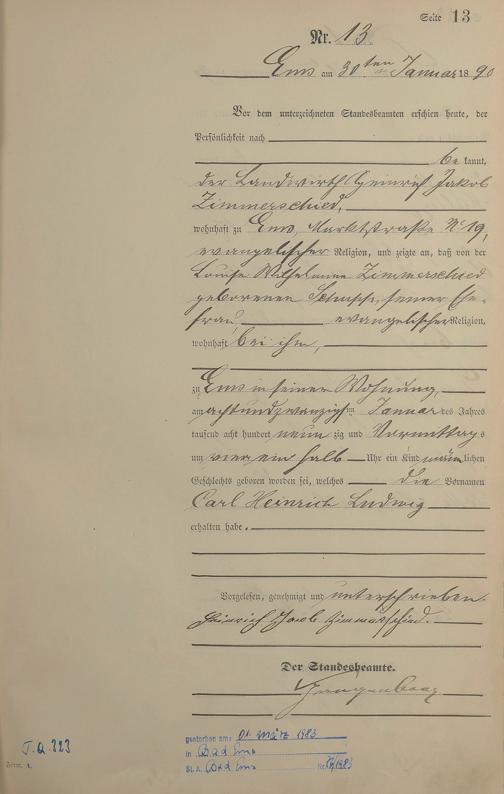 Seite 13
Nr. 13.
Ems am 30ten Januar 1890
Vor dem unterzeichneten Standesbeamten erschien heute, der
Persönlichkeit nach
be kannt,
der Landwirth Heinrich Jakob
Zimmerschied,
wohnhaft zu Ems, Marktstraße No 19,
evangelischer Religion, und zeigte an, daß von der
Louise Wilhelmine Zimmerschied
geborenen Schupp, seiner Ehe-
frau evangelischer Religion,
wohnhaft bei ihm,
zu Ems in seiner Wohnung,
am achtundzwanzigsten Januar des Jahres
tausend acht hundert neun zig und Vormittags
um vier ein halb Uhr ein Kind männlichen
Geschlechts geboren worden sei, welches die Vornamen
Carl Heinrich Ludwig
erhalten habe.
Vorgelesen, genehmigt und unterschrieben.
Heinrich Jacob Zimmerschied.
Der Standesbeamte.
gestorben am: 01. März 1983
in Bad Ems
St.A. Bad Ems Nr. /1983
Form. 1.